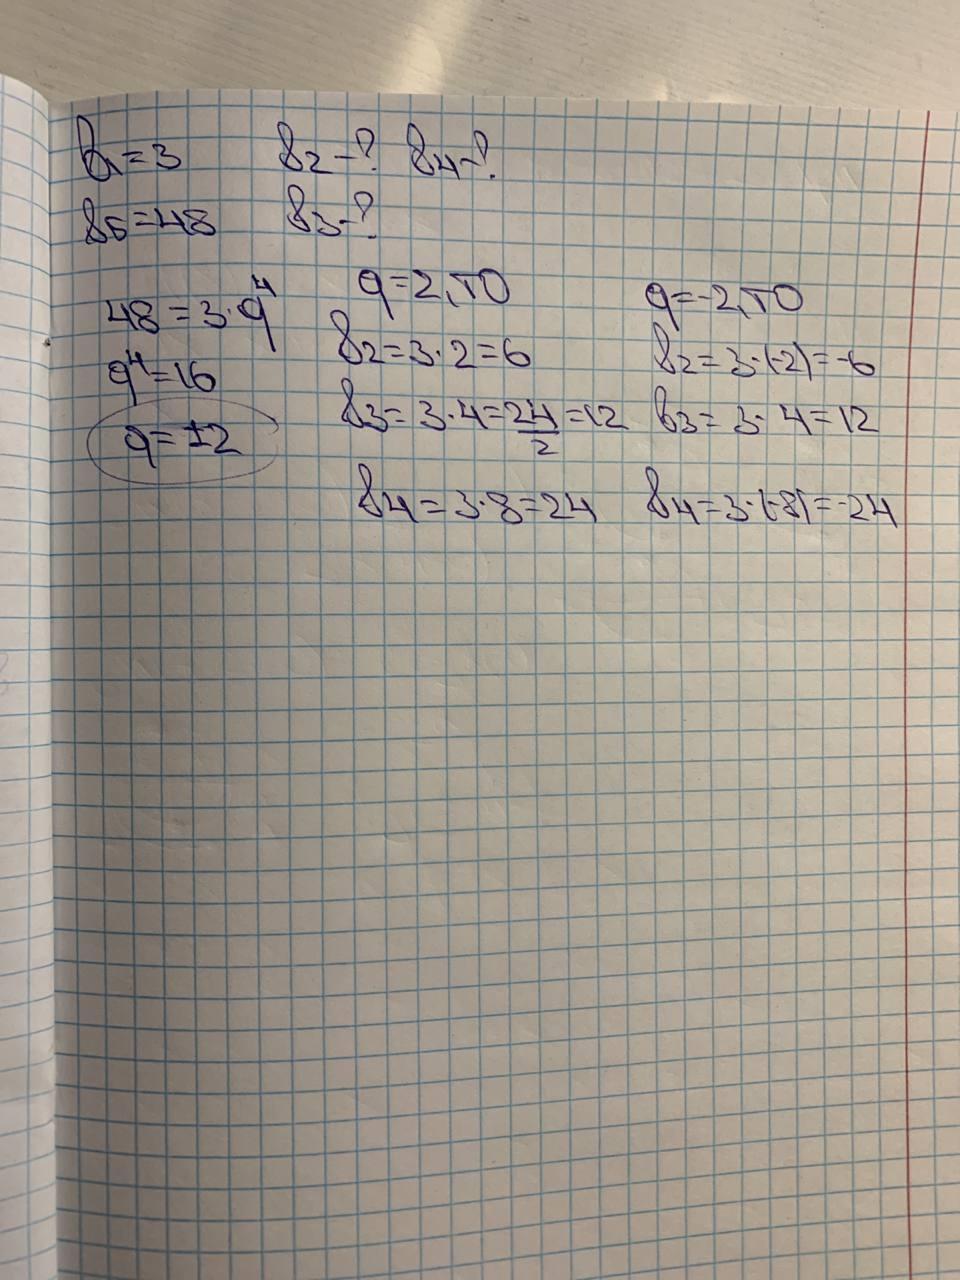 b₁=3 b₂-? b₄-?
b₅=48 b₃-?
48=3·q⁴
q⁴=16
q=±2
q=2, то
b₂=3·2=6
b₃=3·4=24/2=12
b₄=3·8=24
q=-2, то
b₂=3·(-2)=-6
b₃=3·4=12
b₄=3·(-8)=-24